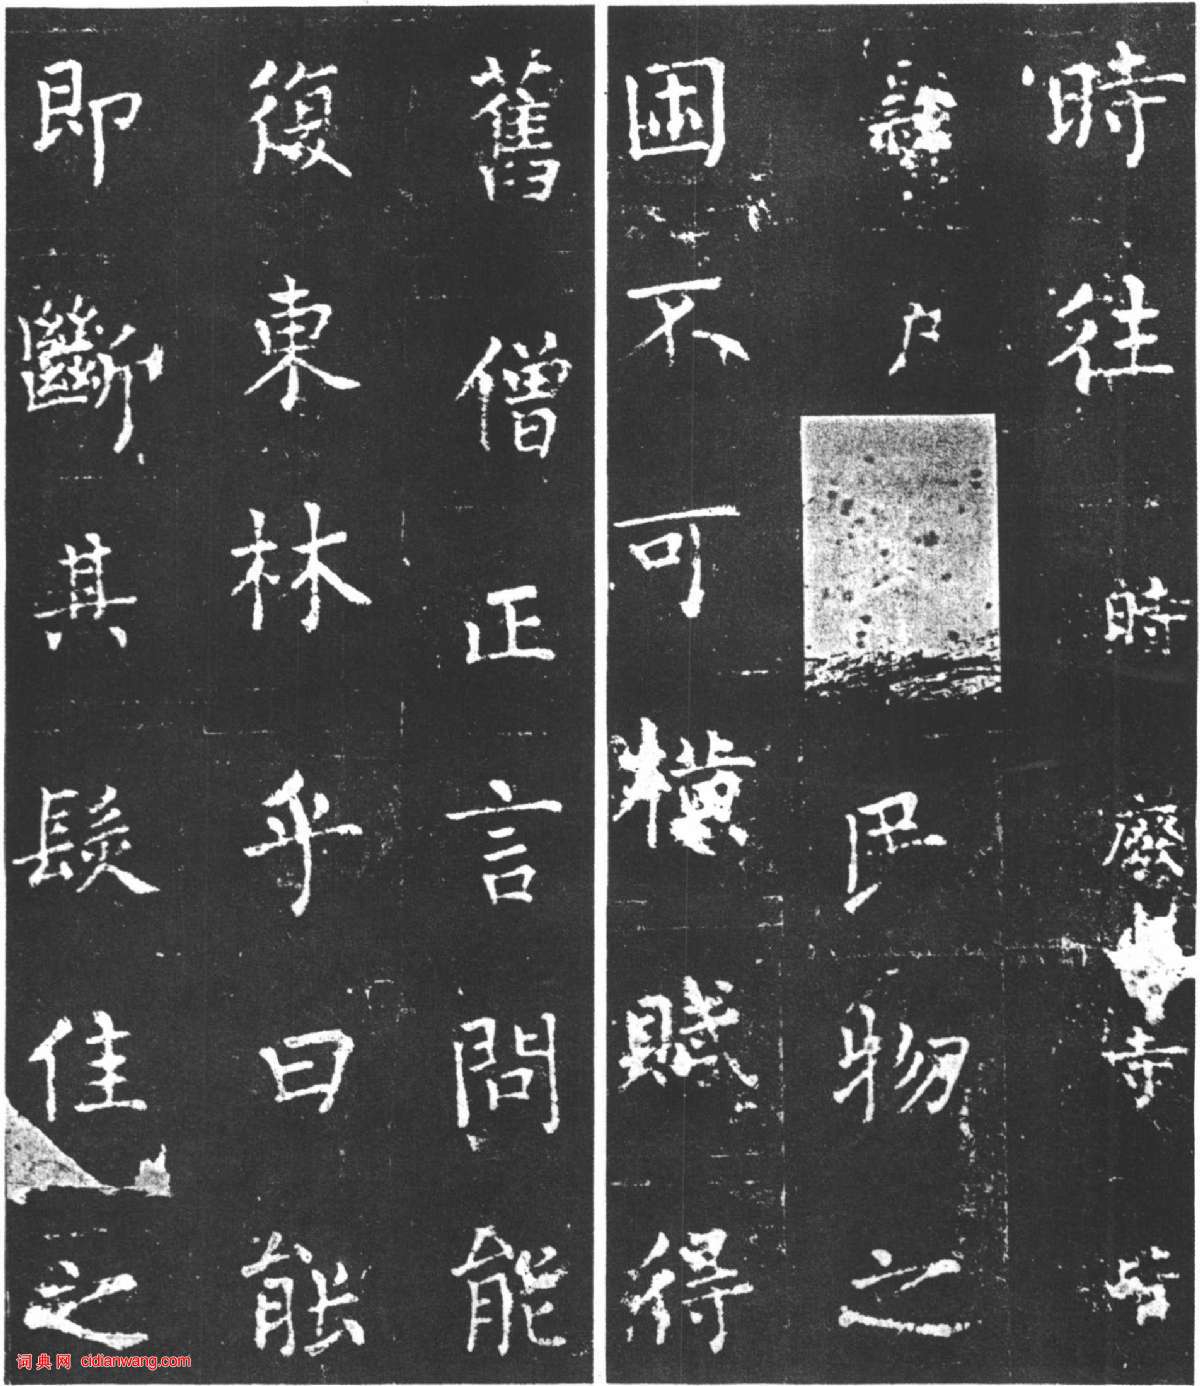 時往時廢寺
户民物之
困不可糞賦得
舊僧正言問能
復東林乎曰能
即斷其髮住之
词典网 cidianwang.com